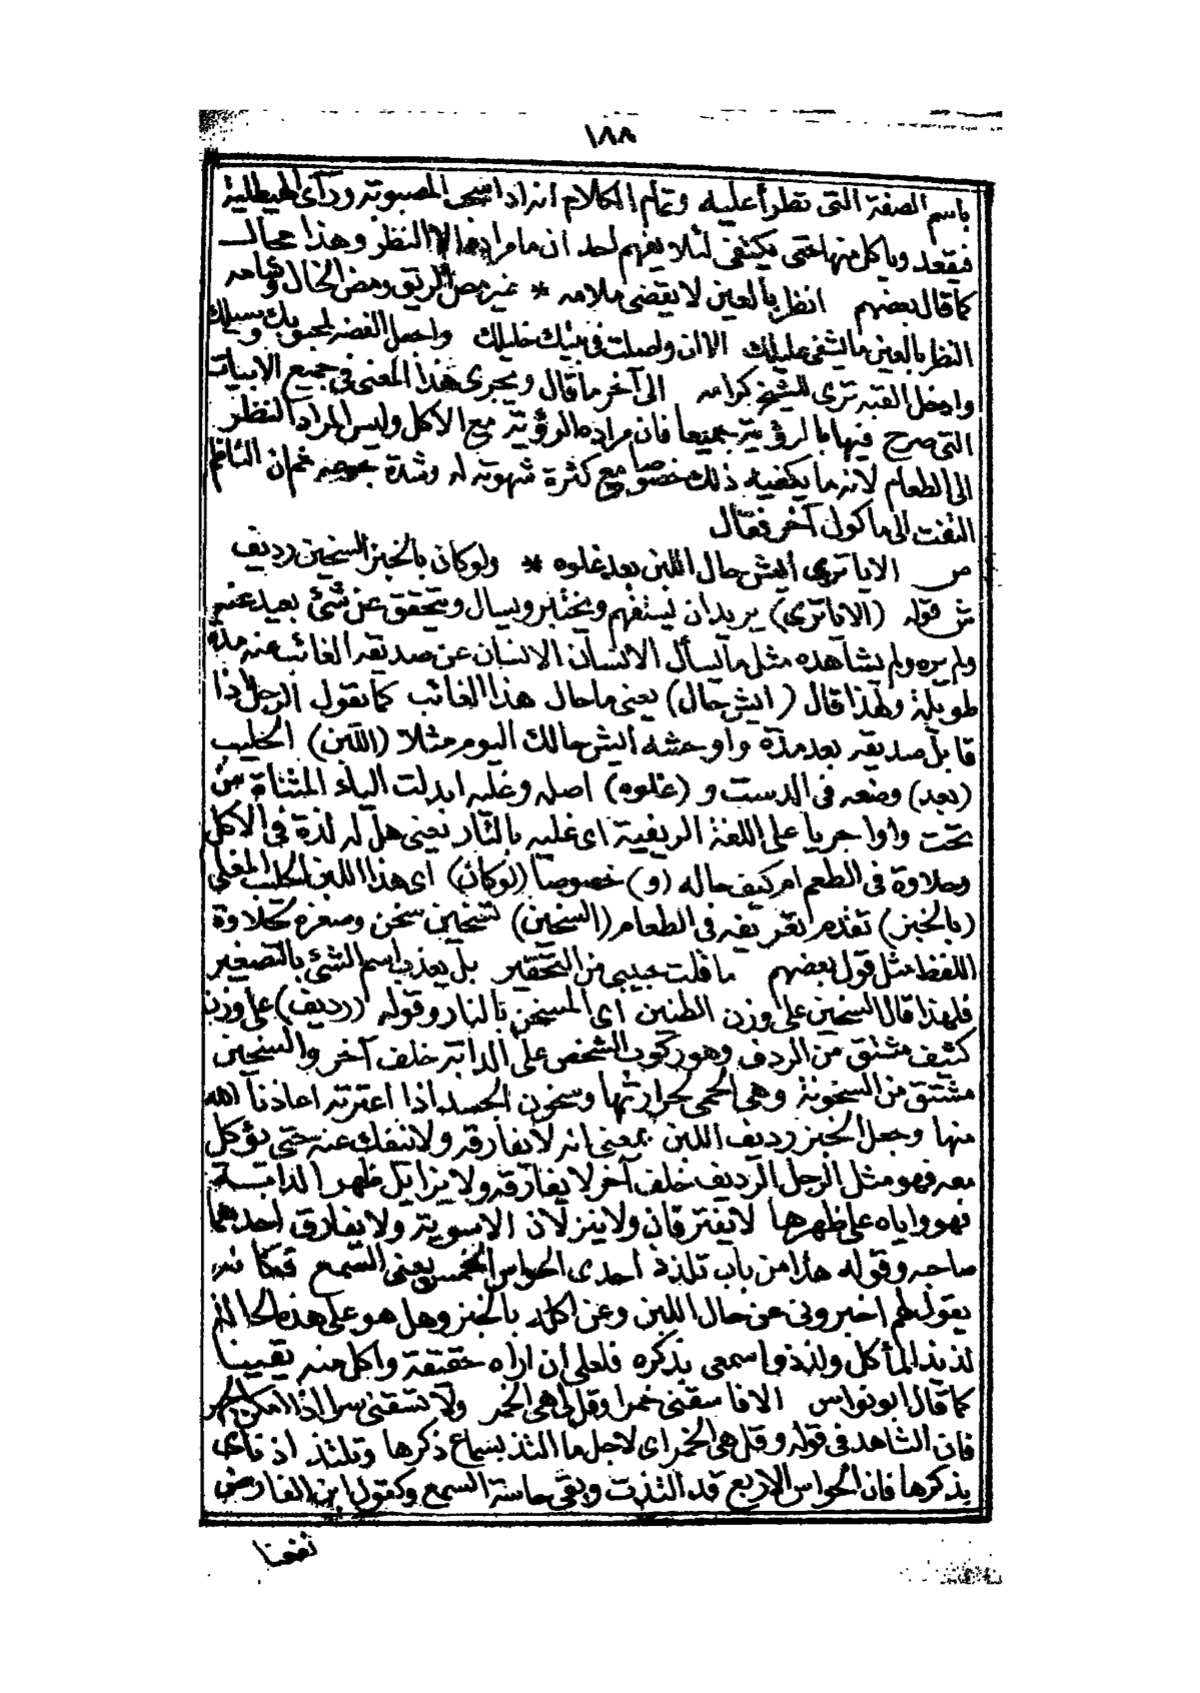 ١٨٨
باسم الصفة التى تطرأ عليه وتمام الكلام انه اذا سحى المصبوته ورآى الهيطلية
فيقعد وياكل منها حتى يكتفى لئلا يفهم احد ان مامراده الا النظر وهذا محال
كما قال بعضهم انظر بالعين لا يقضى ملامه * غير مص الريق ومض الخال وشامه
النظر بالعين ما يشفى عليلك الا ان واصلت فى بيتك خليلك واحمل الفضه لمحبوبك بسيلك
وادخل القبه ترى للشيخ كرامه الى آخر ما قال ويجرى هذا المعنى فى جميع الابيات
التى صرح فيها بالرؤية جميعا فان مراده الرؤية مع الاكل وليس المراد النظر
الى الطعام لانه ما يكفيه ذلك خصوصا مع كثرة شهوته له وشدة جوعه ثم ان الناظم
التفت الى ماكول آخر فقال
ص الا يا ترى أيش حال اللبن بعد غلوه * ولو كان بالخبز السخين رديف
ش قوله (الا يا ترى) يريد ان يستفهم ويختبر ويسال ويتحقق عن شئ بعيد عنه
ولم يره ولم يشاهده مثل ما يسأل الانسان الانسان عن صديقه الغائب عنه مدة
طويلة ولهذا قال (ايش حال) يعنى ما حال هذا الغائب كما يقول الرجل اذا
قابل صديقه بعد مدة واوحشه أيش حالك اليوم مثلا (اللبن) الحليب
(بعد) وضعه فى الدست و (غلوه) اصله وغليه ابدلت الياء المثناة من
تحت واوا جريا على اللغة الريفية اى غليه بالنار يعنى هل له لذة فى الاكل
وحلاوة فى الطعم ام كيف حاله (و) خصوصا (لوكان) اى هذا اللبن الحليب المغلى
(بالخبز) تقدم تعريفه فى الطعام (السخين) تسخين سخن وصغره لحلاوة
اللفظ مثل قول بعضهم ما قلت حبيبى من التحقير بل يعذب اسم الشئ بالتصغير
فلهذا قال السخين على وزن الطنين اى المسخن بالنار وقوله (رديف) على وزن
كثيف مشتق من الردف وهو ركوب الشخص على الدابة خلف آخر والسخين
مشتق من السخونة وهى الحمى لحرارتها وسخون الجسد اذا اعترته اعاذنا الله
منها وجعل الخبز رديف اللبن بمعنى انه لا يفارقه ولا ينفك عنه حتى يؤكل
معه فهو مثل الرجل الرديف خلف آخر لا يفارقه ولا يزايل ظهر الدابة
فهو واياه على ظهرها لا يفترقان ولا ينزلان الا سوية ولا يفارق احدهما
صاحبه وقوله هذا من باب تلذذ احدى الحواس الخمس يعنى السمع فكانه
يقول لهم اخبرونى عن حال اللبن وعن اكله بالخبز وهل هو على هذه الحالة
لذيذ المأكل ولذذوا سمعى بذكره فلعلى ان اراه حقيقة واكل منه يقينا
كما قال ابو نواس الا فاسقنى خمرا وقل لى هى الخمر ولا تسقنى سرا اذا امكن الجهر
فان الشاهد فى قوله وقل هى الخمر اى لاجل ما التذ بسماع ذكرها وتلتذ اذناى
بذكرها فان الحواس الاربع قد التذت وبقى حاسة السمع وكقول ابن الفارض
نفعنا